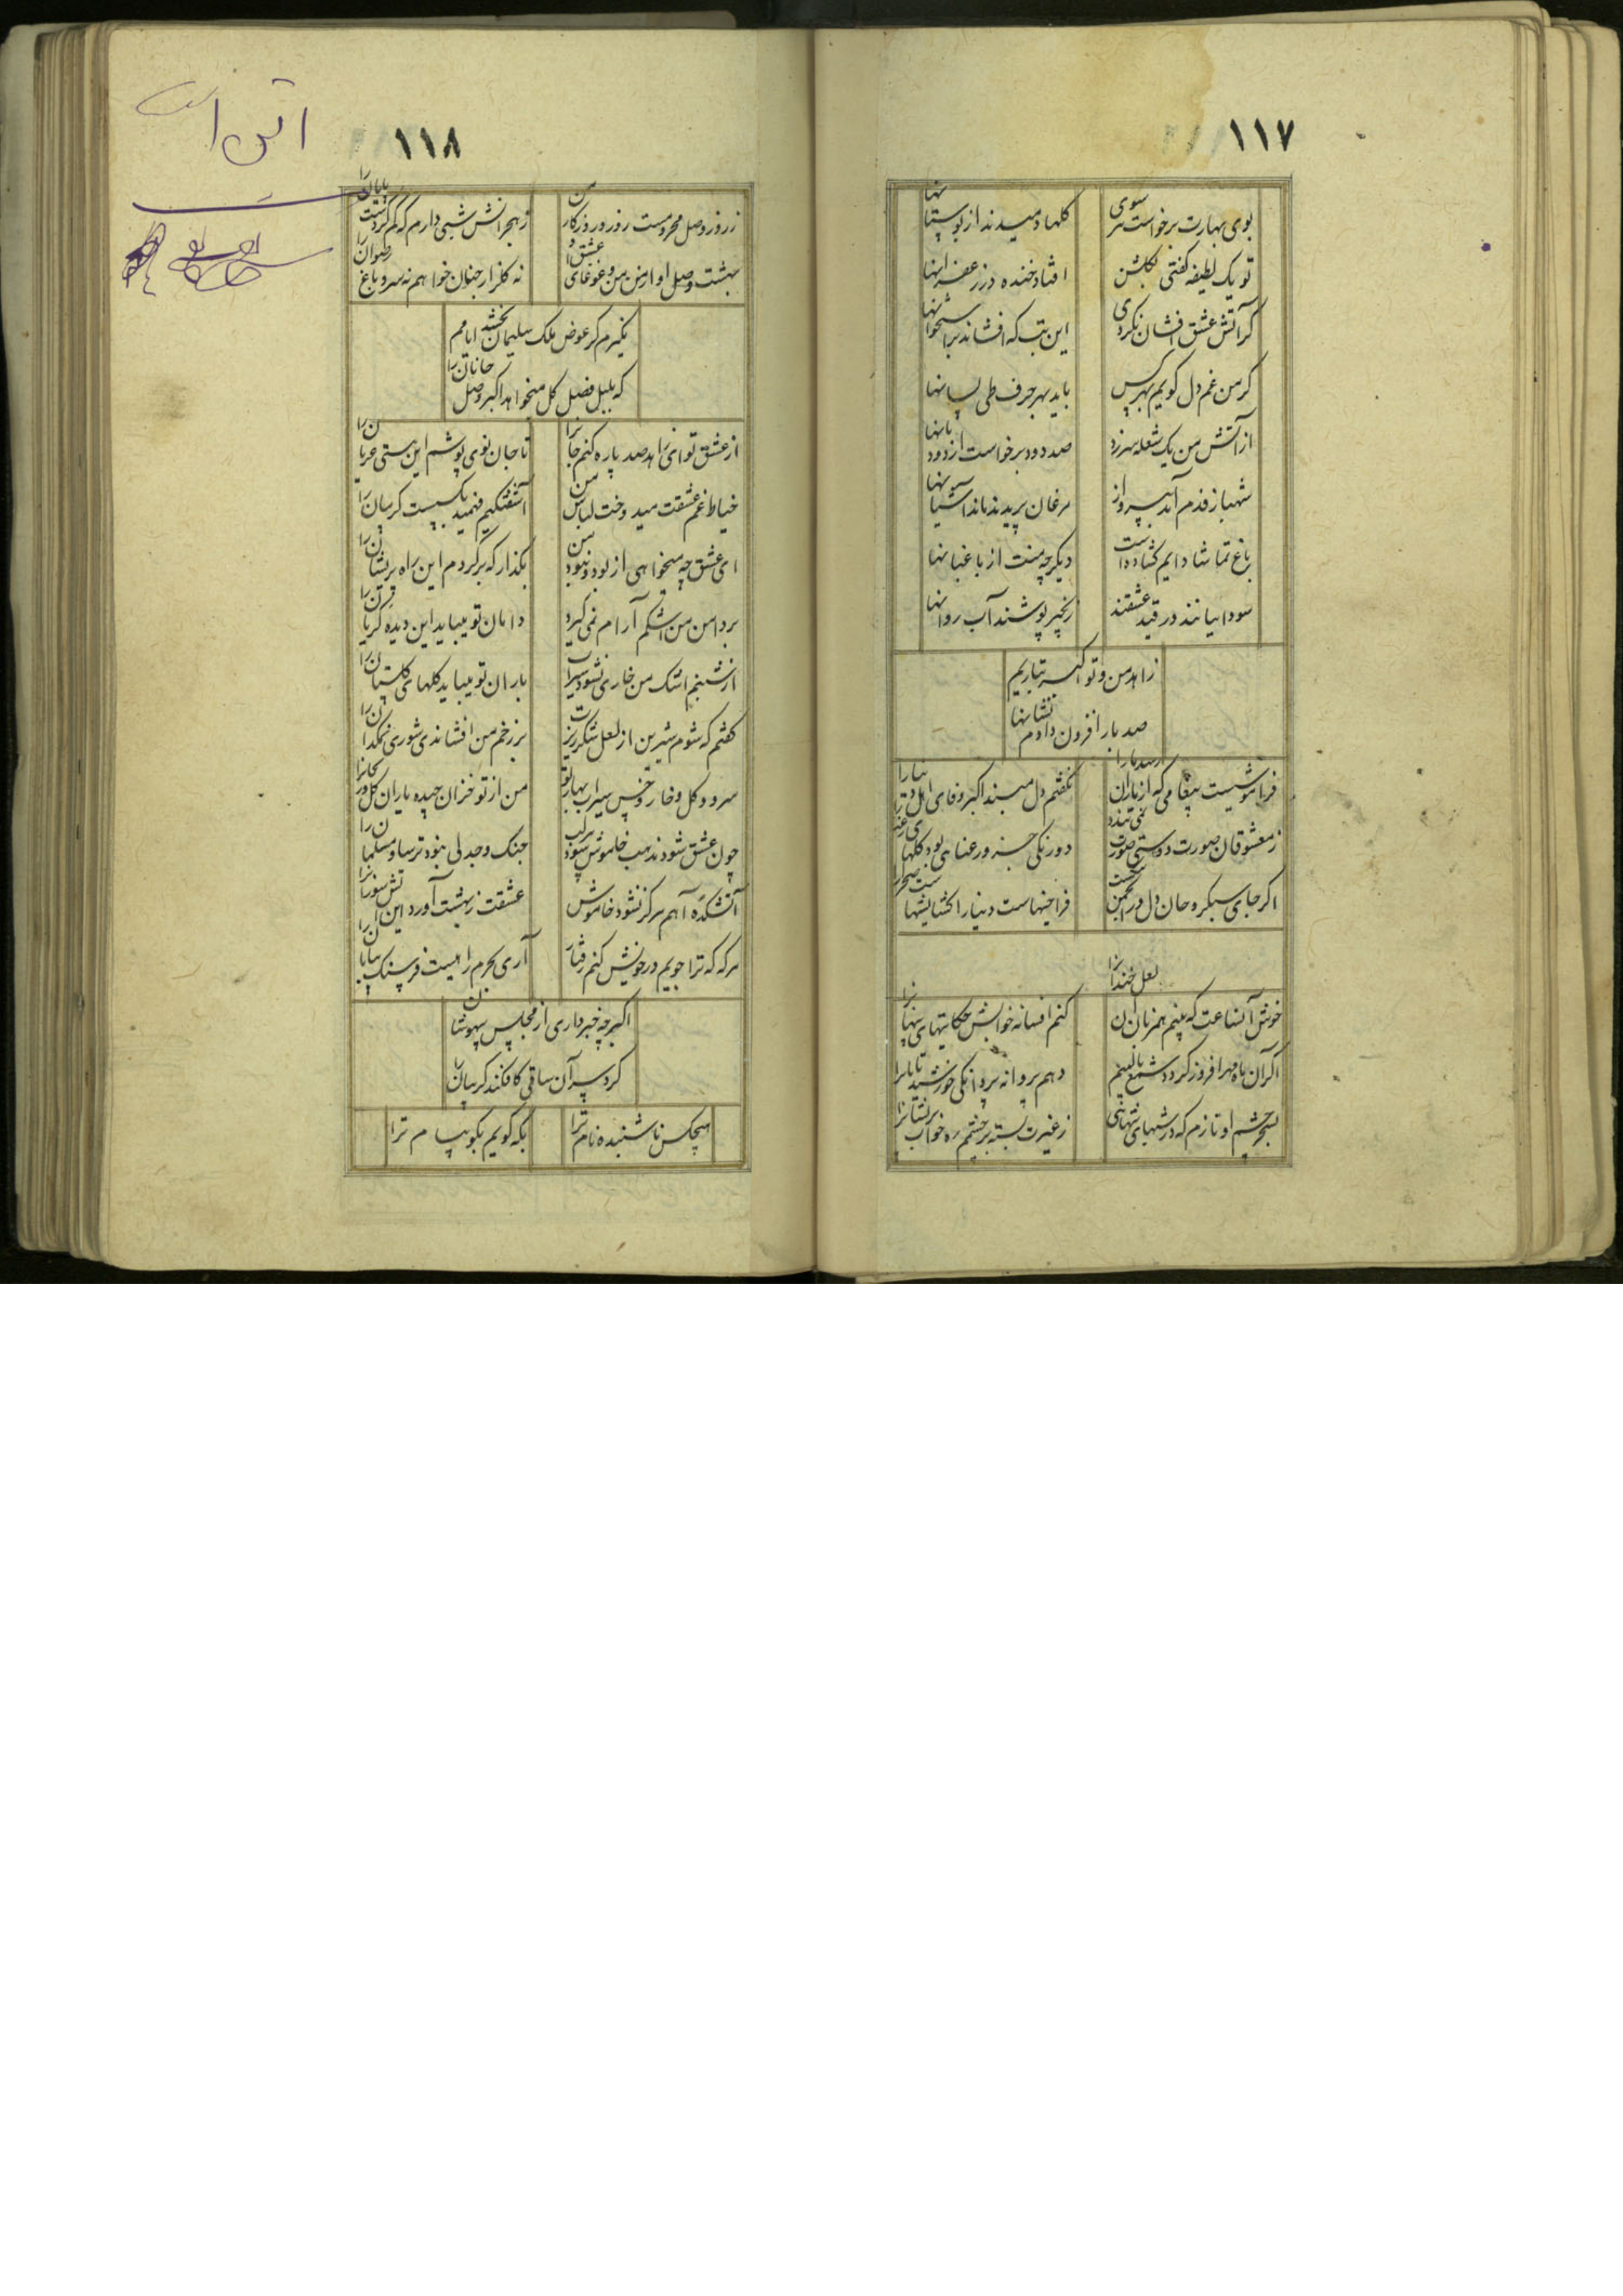 ١١٧
بوی بهارت برخواست سر سوی
گلها دمیدند از بوستانها
تو یک لطیفه گفتی بگلشن
افتاد خنده در زعفرانها
گر آتش عشق افشان نکردی
این تب که افشاند بر استخوانها
گر من غم دل گویم بهر کس
باید بهر حرف طی لسانها
از آتش من یک شعله سر زد
صد دود برخواست از دودمانها
شهباز قدم آمد بپرواز
مرغان پریدند ماند آشیانها
باغ تماشا دایم گشاده است
دیگر چه منت از باغبانها
سودائیانند در قید عشقند
زنجیر پوشند آب روانها
زاهد من و تو اکبر تباریم
صد بار افزون دادم نشانها
فراموشیست پیغامی که از یاران رسد یارا
نگفتم دل مبند اکبر وفای اهل دنیا را
ز معشوقان صورت دوستی صورت نمی بندد
دو رنگی حسن و رعنایی بود گلهای رعنا را
اگر جای سبکروحان دل در انجمن تنگست
فراخیهاست دنیا را گشایشهاست صحرا را
خوش آنساعت که بینم همزبان آن لعل خندانرا
کنم افسانه خوابش حکایتهای پنهانرا
اگر آن ماه مهر افروز گردد شمع بالینم
دهم پروانه پروانگی خورشید تابانرا
بسحر چشم او نازم که در شبهای تنهائی
ز غیرت بسته بر چشمم ره خواب پریشانرا
١١٨
ز روز وصل محرومست روز و روزگار من
ز هجرانش شبی دارم که گم کردست پایان را
بهشت وصل او از من من و غوغای عشق او
نه گلزار جنان خواهم نه سرو باغ رضوان را
نگیرم گر عوض ملک سلیمان بخشد ایامم
که بلبل فصل گل میخواهد اکبر وصل جانان را
از عشق تو ای زاهد صد پاره کنم جانرا
تا جان نوی پوشم این هستی عریان را
خیاط غم عشقت میدوخت لباس من
آشفتگیم فهمید بگسیست گریبان را
ای عشق چه میخواهی از بود و نبود من
بگذار که برگردم این راه پریشان را
بر دامن من اشکم آرام نمی گیرد
دامان تو میباید این دیده گریان را
از شبنم اشک من خاری نشود سیراب
باران تو میباید گلهای گلستان را
گفتم که شوم شیرین از لعل شکرریزت
بر زخم من افشاندی شوری نمکدان را
سرو و گل و خار و خس سیراب بهار تو
من از تو خزان چیده یاران گل و ریحانرا
چون عشق شود مذهب خاموش شود سر لب
جنگ و جدلی نبود ترسا و مسلمان را
آتشکده آهم هرگز نشود خاموش
عشقت زبهشت آورد این آتش سوزانرا
هر گه که ترا جویم در خویش کنم رفتار
آری بحرم راهیست فرسنگ بیابان را
اکبر چه خبر داری از مجلس بیهوشان
گرد سر آن ساقی کافکند گریبان را
هیچکس ناشنیده نام ترا
بکه گویم بگو پیام ترا